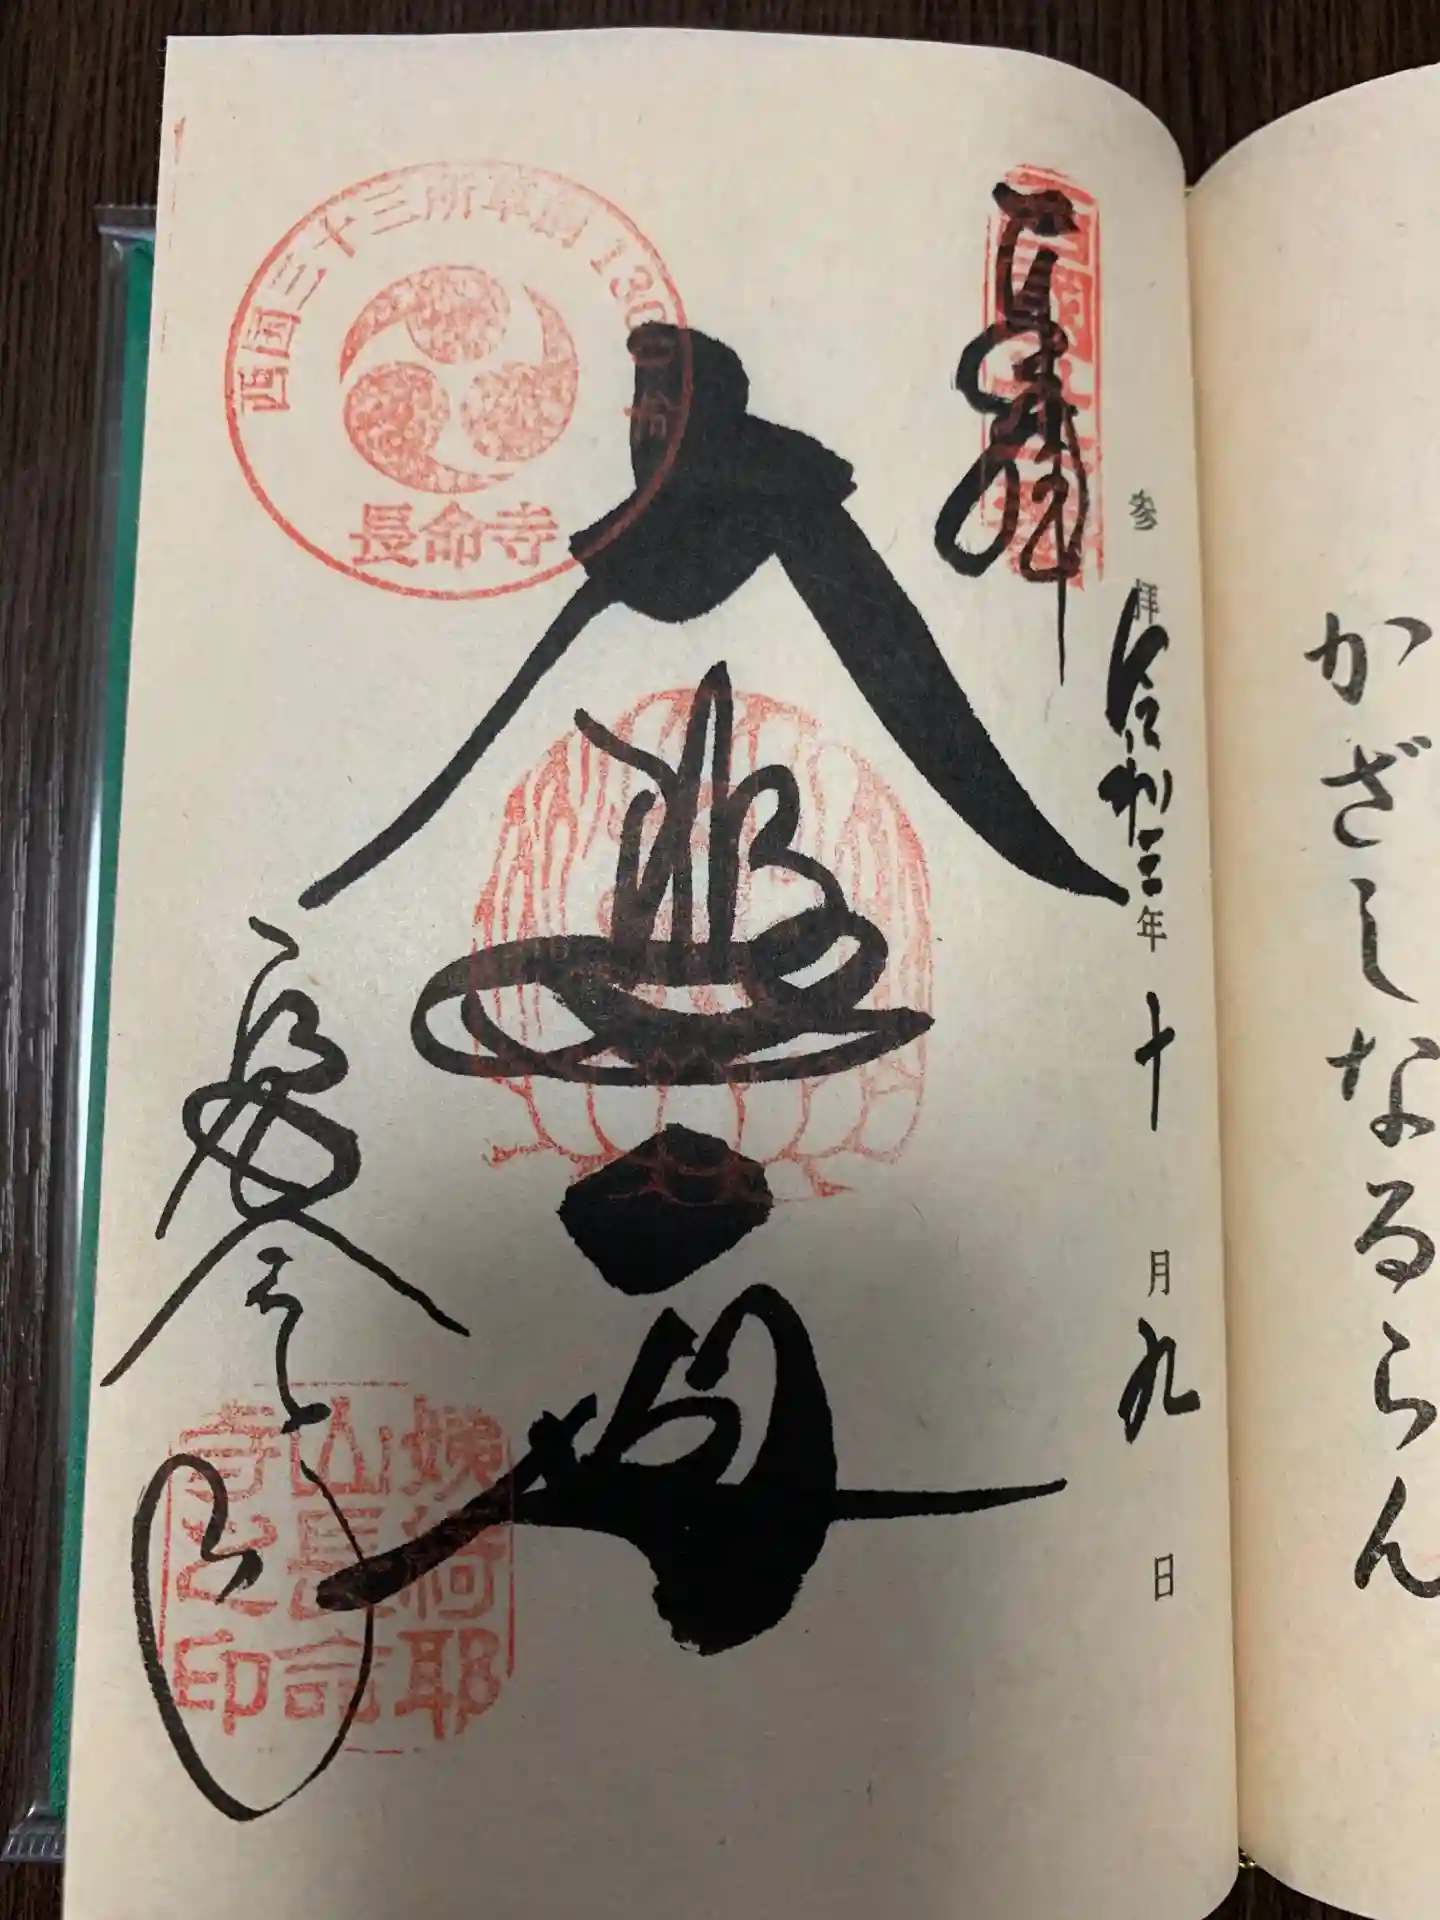 かざしなるらん
参拝令和三年十月九日
奉拝
大悲殿
長命寺
西国三十三所草創1300年
長命寺
姨綺耶
山長命
寺之印